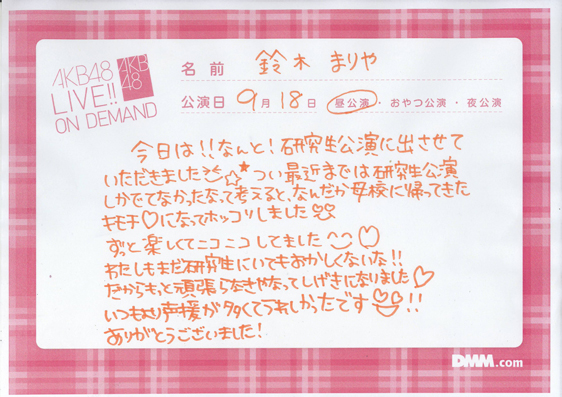 AKB48
LIVE!!
ON DEMAND
AKB
48
名前 鈴木 まりや
公演日 9月18日 昼公演・おやつ公演・夜公演
今日は!!なんと!研究生公演に出させて
いただきました☆ つい最近までは研究生公演
しかでてなかったなって考えると、なんだか母校に帰ってきた
キモチ♡になってホッコリしました
ずっと楽しくてニコニコしてました
わたしもまだ研究生にいてもおかしくないな!!
だからもっと頑張らなきゃなってしげきになりました♡
いつもより声援が多くてうれしかったです!!
ありがとうございました!
DMM.com